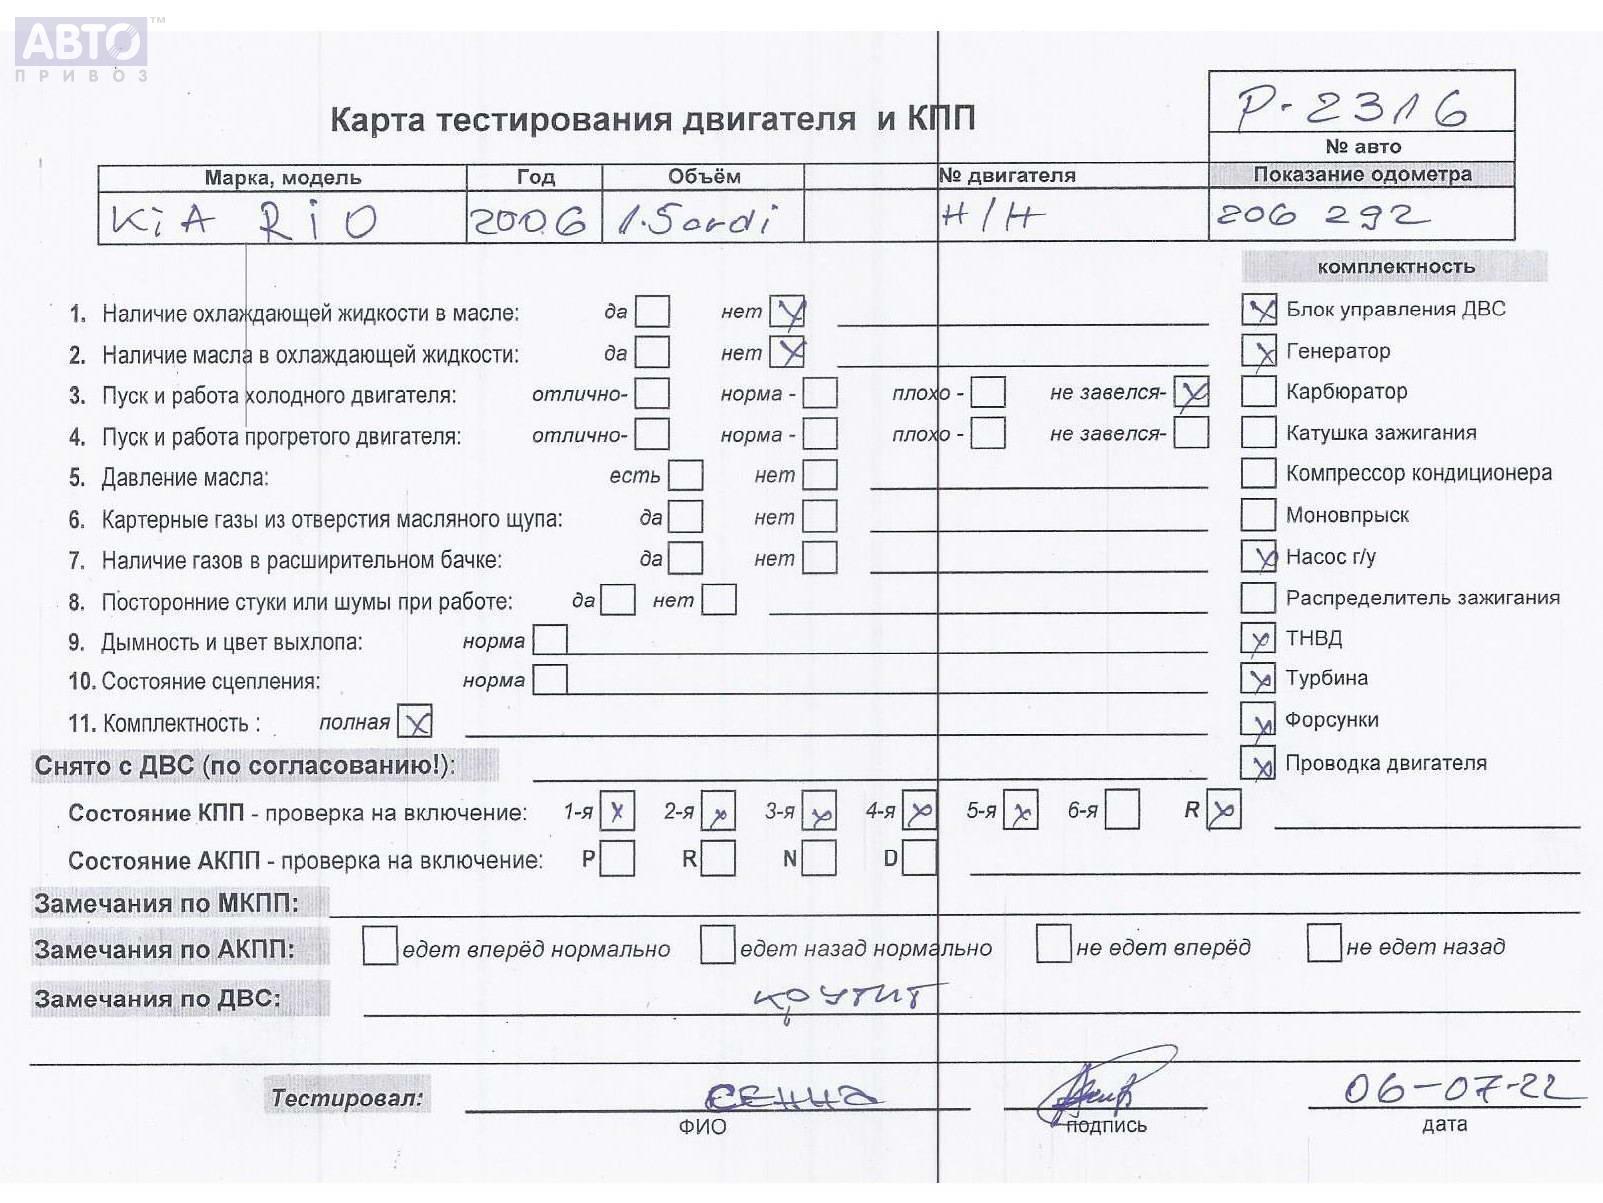 АВТО™
ПРИВОЗ
Карта тестирования двигателя и КПП
P-2316
№ авто
Марка, модель Год Объём № двигателя Показание одометра
KiA RiO 2006 1.5crdi Н/Н 206 292
комплектность
1. Наличие охлаждающей жидкости в масле: да нет Блок управления ДВС
2. Наличие масла в охлаждающей жидкости: да нет Генератор
3. Пуск и работа холодного двигателя: отлично- норма - плохо - не завелся- Карбюратор
4. Пуск и работа прогретого двигателя: отлично- норма - плохо - не завелся- Катушка зажигания
5. Давление масла: есть нет Компрессор кондиционера
6. Картерные газы из отверстия масляного щупа: да нет Моновпрыск
7. Наличие газов в расширительном бачке: да нет Насос г/у
8. Посторонние стуки или шумы при работе: да нет Распределитель зажигания
9. Дымность и цвет выхлопа: норма ТНВД
10. Состояние сцепления: норма Турбина
11. Комплектность : полная Форсунки
Снято с ДВС (по согласованию!): Проводка двигателя
Состояние КПП - проверка на включение: 1-я 2-я 3-я 4-я 5-я 6-я R
Состояние АКПП - проверка на включение: P R N D
Замечания по МКПП:
Замечания по АКПП: едет вперёд нормально едет назад нормально не едет вперёд не едет назад
Замечания по ДВС: крутит
Тестировал: СЕННА 06-07-22
ФИО подпись дата